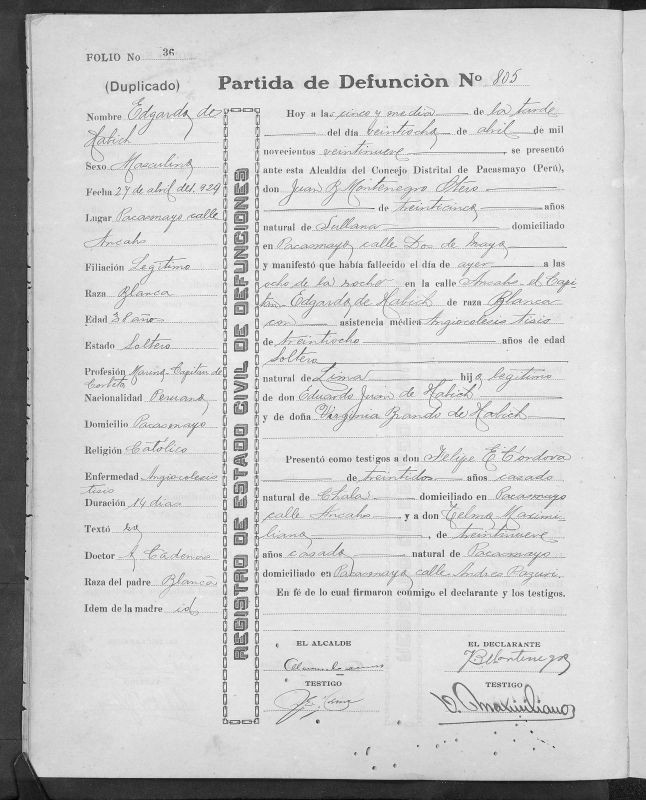 FOLIO No 36
(Duplicado)
Partida de Defunciòn No 805
Nombre Edgardo de
Habich
Sexo Masculino
Fecha 27 de abril de 1.929
Lugar Pacasmayo calle
Ancahs
Filiación Legítimo
Raza Blanca
Edad 38 años
Estado Soltero
Profesión Marino-Capitan de
Corbeta
Nacionalidad Peruano
Domicilio Pacasmayo
Religión Católico
Enfermedad Angiocolecis
tisis
Duración 14 dias
Textó
Doctor A Cádenas
Raza del padre Blanca
Idem de la madre id
REGISTRO DE ESTADO CIVIL DE DEFUNCIONES
Hoy a las cinco y media de la tarde
del día veintiocho de abril de mil
novecientos veintinueve, se presentó
ante esta Alcaldía del Concejo Distrital de Pacasmayo (Perú),
don Juan B Montenegro Otero
de treinticinco años
natural de Sullana domiciliado
en Pacasmayo calle Dos de Mayo
y manifestó que había fallecido el día de ayer a las
ocho de la noche en la calle Ancahs el Capi
tan Edgardo de Habich de raza Blanca
con asistencia médica Angiocolecis tisis
de treintiocho años de edad
Soltero
natural de Lima hijo legítimo
de don Eduardo Juan de Habich
y de doña Virginia Brando de Habich
Presentó como testigos a don Felipe E Cordova
de treintidos años casado
natural de Chala domiciliado en Pacasmayo
calle Ancahs y a don Telmo Maximi-
liano, de treintinueve
años casado natural de Pacasmayo
domiciliado en Pacasmayo calle Andres Razuri.
En fé de lo cual firmaron conmigo el declarante y los testigos.
EL ALCALDE
EL DECLARANTE
JBMontenegro
TESTIGO
TESTIGO
Maximiliano